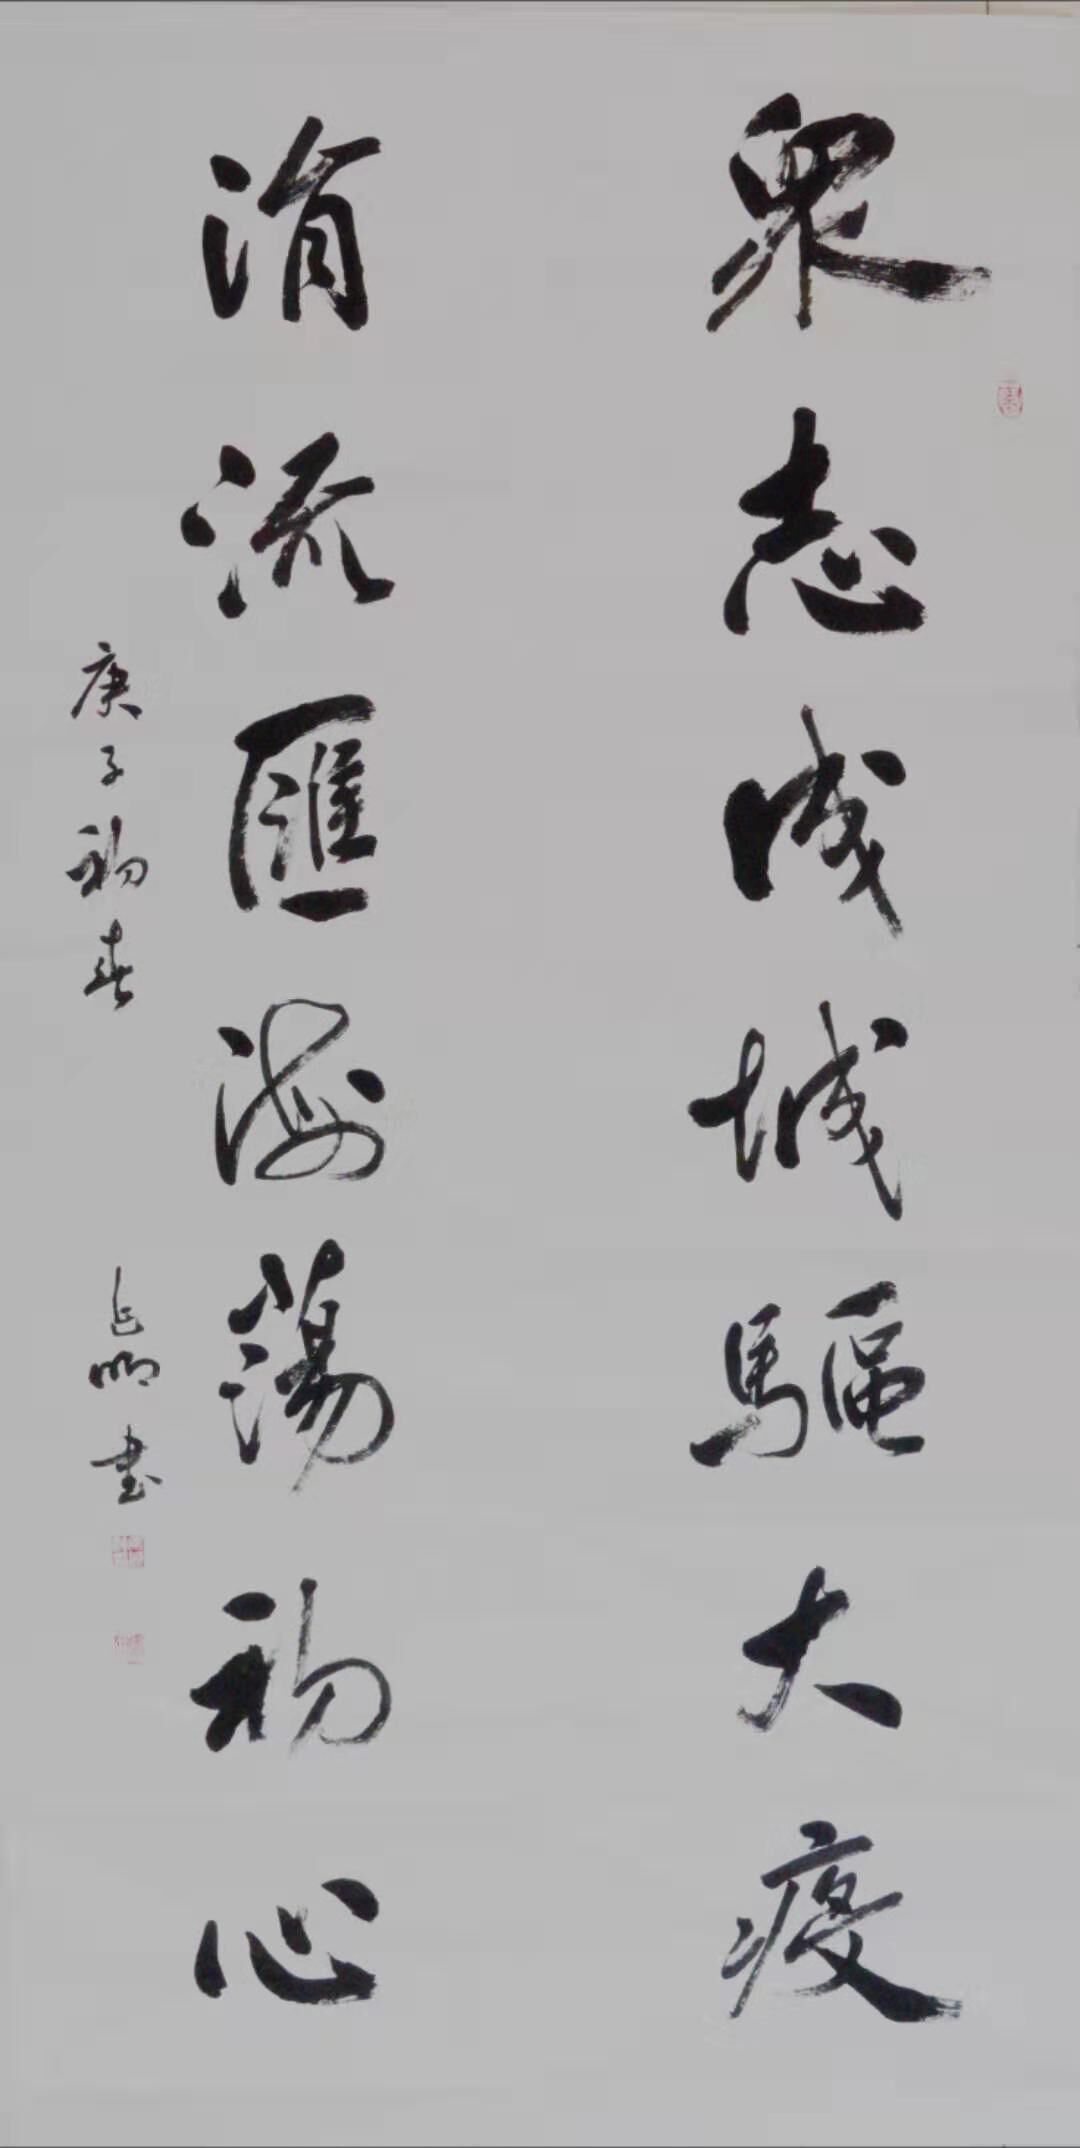 眾志成城驅大疫
涓流匯海蕩初心
庚子初春
書